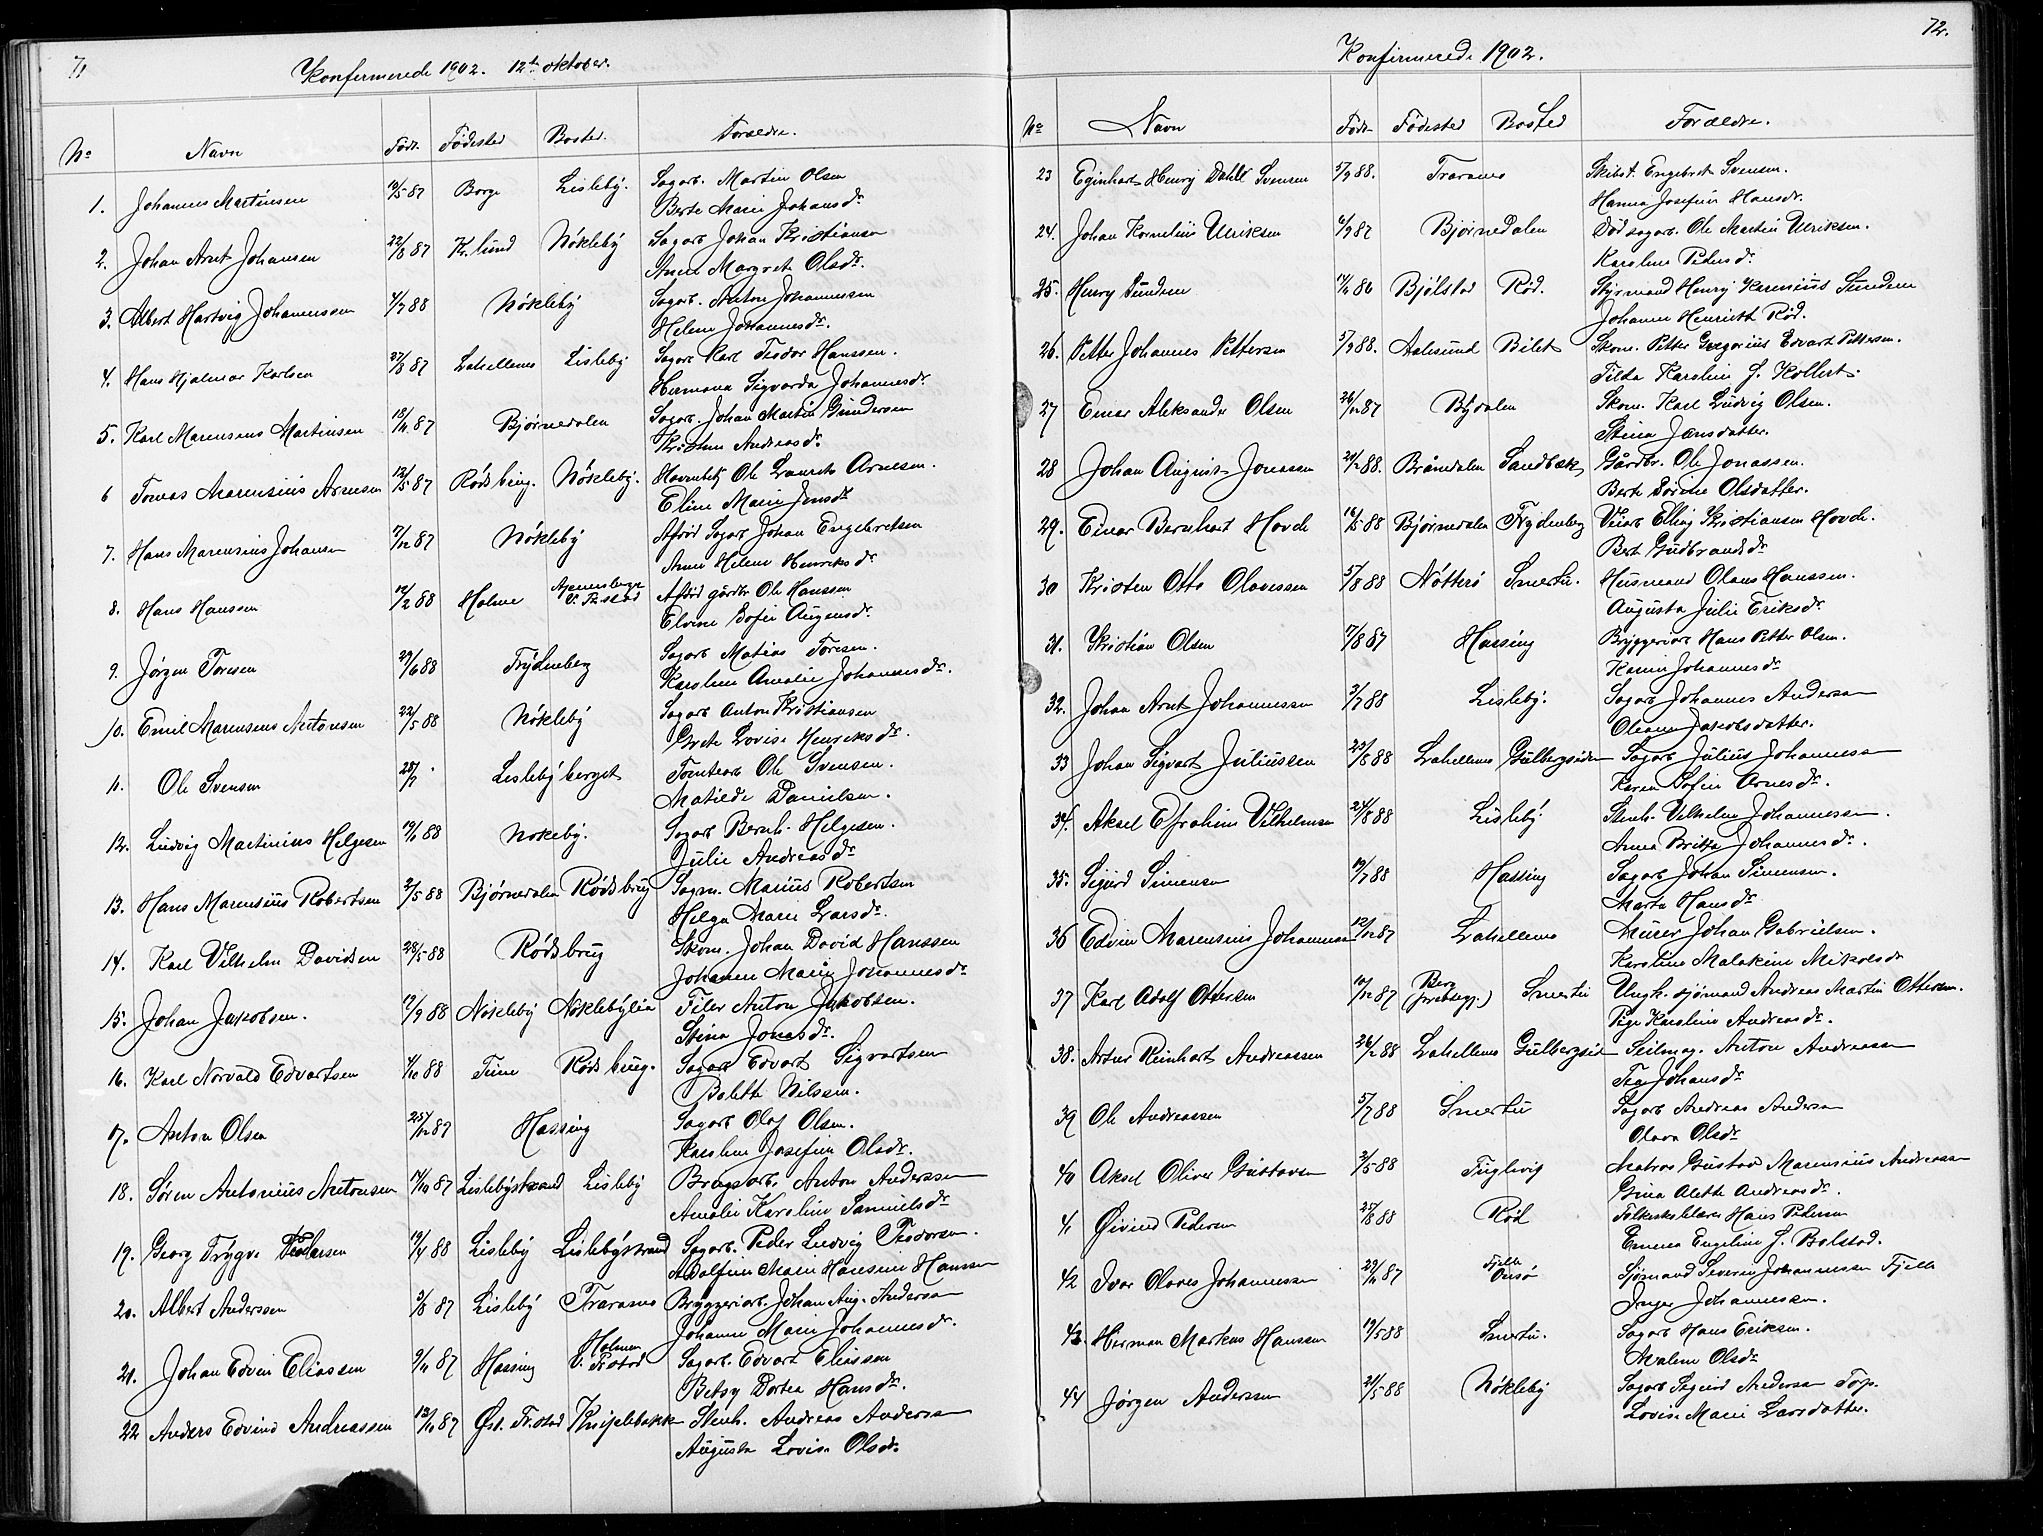 71
Konfirmerede 1902. 12te oktober.
No Navn Født. Fødested Bosted. Forældre.
1. Johannes Martinsen 87 Borge Lisleby. Sagarb. Martin Olsen
Berte Marie Johansdr
2. Johan Arnt Johansen 22/8 87 Kr.sund Nökleby Sagarb Johan Kristiansen
Anne Margrete Olsdr.
3. Albert Hartvig Johannessen 4/7 88 Nökleby Sagarb. Anton Johannessen
Helene Johannesdr.
4. Hans Hjalmar Karlsen 27/8 87 Lahellemo Lisleby Sagarb Karl Teodor Hanssen.
Hermana Sigvarda Johannesdr
5. Karl Marensius Martinsen 18/11 87 Bjørnedalen Sagarb. Johan Martin Gundersen
Kristine Andreasdr
6 Tomas Marensius Arnesen 12/5 87 Röds brug. Nökleby. Havnbetj Ole Laurits Arnesen.
Eline Marie Jensdr
7. Hans Marensius Johansen 7/12 87 Nökleby Afdöd Sagarb Johan Engebretsen
Anne Helene Henriksdr
8. Hans Hanssen 12/2 88 Holme V. Fr.stad Afdöd gårdbr Ole Hanssen
Elvine Sofie Augensdr.
9. Jørgen Toresen 29/6 88 Frydenberg Sagarb Matias Toresen.
Karoline Amalie Johannesdr.
10. Emil Marensius Antonsen 22/5 88 Nökleby Sagarb Anton Kristiansen
Grete Lovise Henriksdr.
11. Ole Svensen 28/7 Lisleby berget Tomtearb Ole Svensen.
Matilde Danielsen.
12. Ludvig Martinius Helgesen 88 Nökleby. Sagarb Bernh. Helgesen.
Julie Andreasdr
13. Hans Marensius Robertsen 2/5 88 Bjørnedalen Röds brug Sagm. Marius Robertsen
Helga Marie Larsdr.
14. Karl Vilhelm Davidsen 28/5 88 Röds brug Skom. Johan David Hanssen
Johanne Marie Johannesdr
15. Johan Jakobsen. 17/9 88 Nökleby Nöklebylia Filer Anton Jakobsen.
Stina Jonasdr.
16. Karl Norvald Edvartsen 1/10 88 Tune Röds brug. Sagarb Edvart Sigvartsen
Bolette Nilssen.
17. Anton Olsen 25/12 87 Hassing Sagarb Olaf Olsen.
Karoline Josefine Olsdr.
18. Søren Antonius Antonsen 14/10 87 Lislebystrand Lisleby Brugsarb. Anton Anderssen
Amalie Karoline Samuelsdr
19. Georg Trygve 19/4 88 Lisleby Lislebystrand Sagarb. Peder Ludvig Teodorsen.
Adolfine Marie Hansine Hanssen
20. Albert Anderssen 87 Lisleby Traramo Bryggeriarb. Johan Aug. Anderssen
Johanne Marie Johannesdr.
21. Johan Edvin Eliassen 9/11 87 Hassing Holmen V. Fr.stad Sagarb. Edvart Eliassen
Betsy Dortea Hansdr.
22 Anders Edvind Andreassen 13/10 87 Øst. Fr.stad Knipslebakk Stenh. Andreas Andersen
Augusta Lovise Olsdr.
72.
Konfirmerede 1902.
No Navn Født Fødested Bosted Forældre.
23 Eginhart Henry Dahll Svensen 5/9 88. Traramo Skibst. Engebret Svensen.
Hanna Josefine Hansdr.
24. Johan Kornelius Ulriksen 6/9 87 Bjørnedalen Död sagarb. Ole Martin Ulriksen.
Karoline Pedersdr.
25. Henry Sundem 86 Bjölstad Röd. Styrmand Henry Karenius Sundem
Johanne Henriette Röd.
26. Petter Johannes Pettersen 5/9 88. Aalesund Bilet Skom. Petter Gregorius Edvart Pettersen.
Tilda Karoline f. Kollert.
27 Einar Aleksander Olsen 26/12 87 Bydalen Skom. Karl Ludvig Olsen.
Stina Jansdatter.
28 Johan August Jonassen 20/2 88. Brändalen Sandbæk Gårdbr. Ole Jonassen.
Berte Sorine Olsdatter.
29. Einar Bernhart Hovde 16/5 88 Bjørnedalen Frydenberg Veiarb Elling Kristiansen Hovde.
Berte Gudbrandsdr
30 Kristen Otto Olavessen 5/8 88 Nötterö Smertu. Husmand Olaus Hanssen.
Augusta Julie Eriksdr
31. Kristian Olsen 7/8 87 Hassing Bryggeriarb Hans Petter Olsen.
Karen Johannesdr
32. Johan Arnt Johannessen 3/7 88 Lisleby. Sagarb Johannes Andersen
Oleane Jakobsdatter.
33 Johan Sigvart Juliussen 23/8 88 Lahellemo Gulbergsiden Sagarb Julius Johannessen
Karen Sofie Arnesdr.
34. Aksel Efrahim Vilhelmsen 24/8 88 Lisleby Stenh. Vilhelm Johannessen.
Anna Britta Johannesdr.
35. Sigurd Simensen 19/7 88 Hassing Sagarb Johan Simensen.
Marta Hansdr
36 Edvin Marensius Johannessen 12/12 87 Lahellemo Murer Johan Gabrielsen.
Karoline Malakine Mikalsdr
37 Karl Adolf Ottersen 10/12 87 Berg (prestegj.) Smertu Ungk. sjømand Andreas Martin Ottersen.
Pige Karoline Andreasdr.
38. Artur Reinhart Andreassen 26/2 88 Lahellemo Gulbergsiden Seilmag. Anton Andreassen
Tea Johansdr
39 Ole Andreassen 5/7 88 Smertu Sagarb Andreas Andersen
Olava Olsdr
40 Aksel Oliver Gustavsen 2/5 88 Fuglevig Matros Gustav Marensius Andreassen
Gina Alette Andreasdr.
41 Øivind Pedersen 25/8 88 Röd Folkeskolelærer Hans Pedersen
Emma Engeline f. Bolstad.
42 Ivar Olaves Johannessen 29/11 87 Fjelle Onsø Sjømand Severin Johannessen Fjelle
Inger Johannessen.
43. Herman Markus Hanssen 19/5 88 Smertu. Sagarb Hans Eriksen.
Malene Olsdr
44 Jørgen Andersen 21/5 88 Nökleby Sagarb Sigurd Andersen Torp.
Lovise Marie Larsdatter.